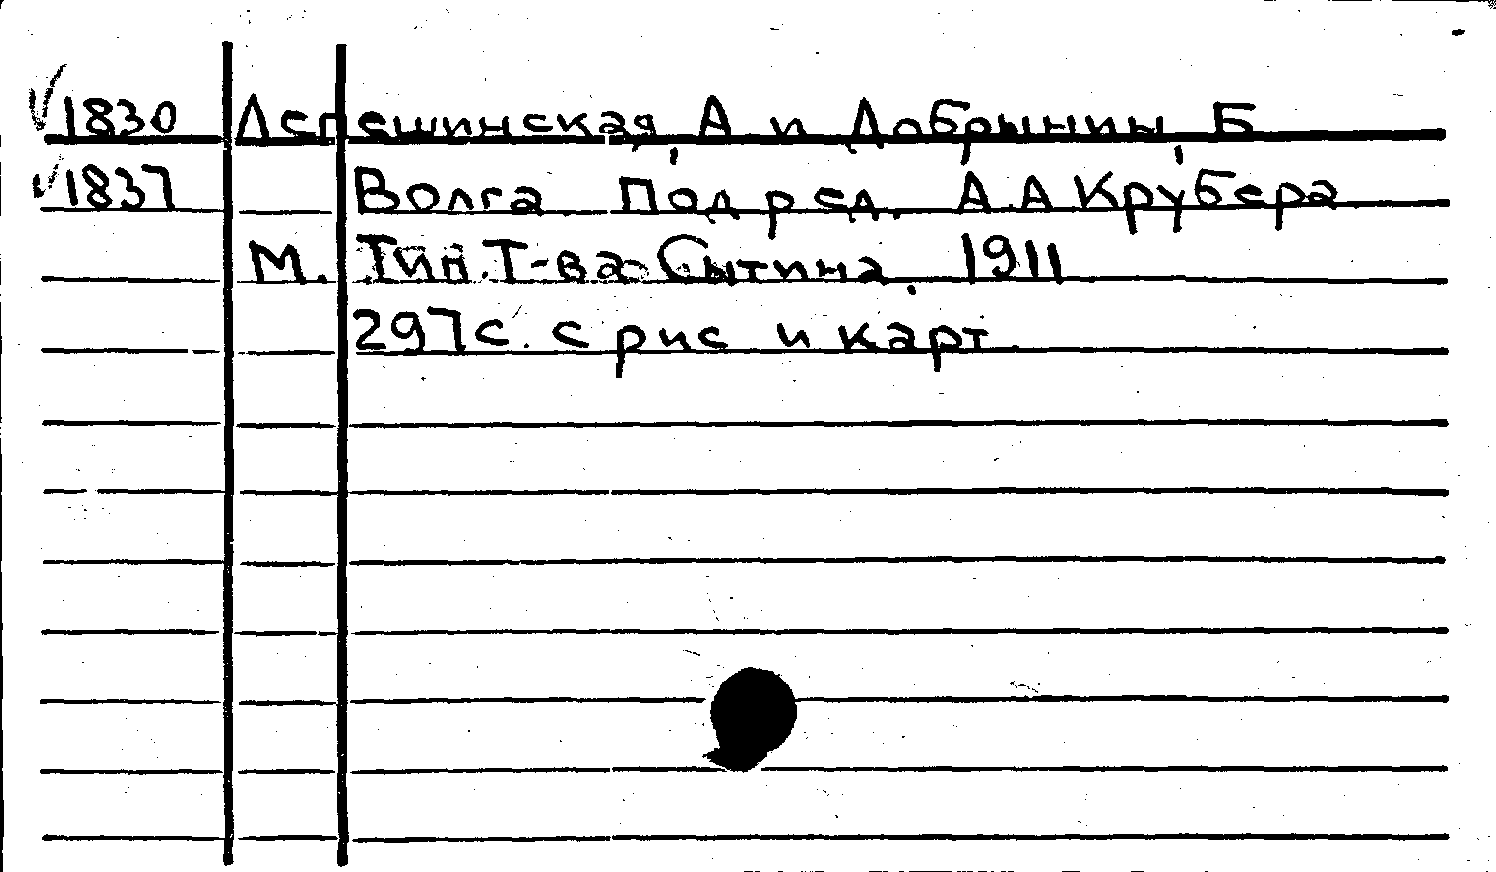 1830 Лепешинская, А и Добрынин, Б
1837 Волга Под ред. А.А Крубера
М. Тип. Т-ва Сытина. 1911
297с. с рис и карт.